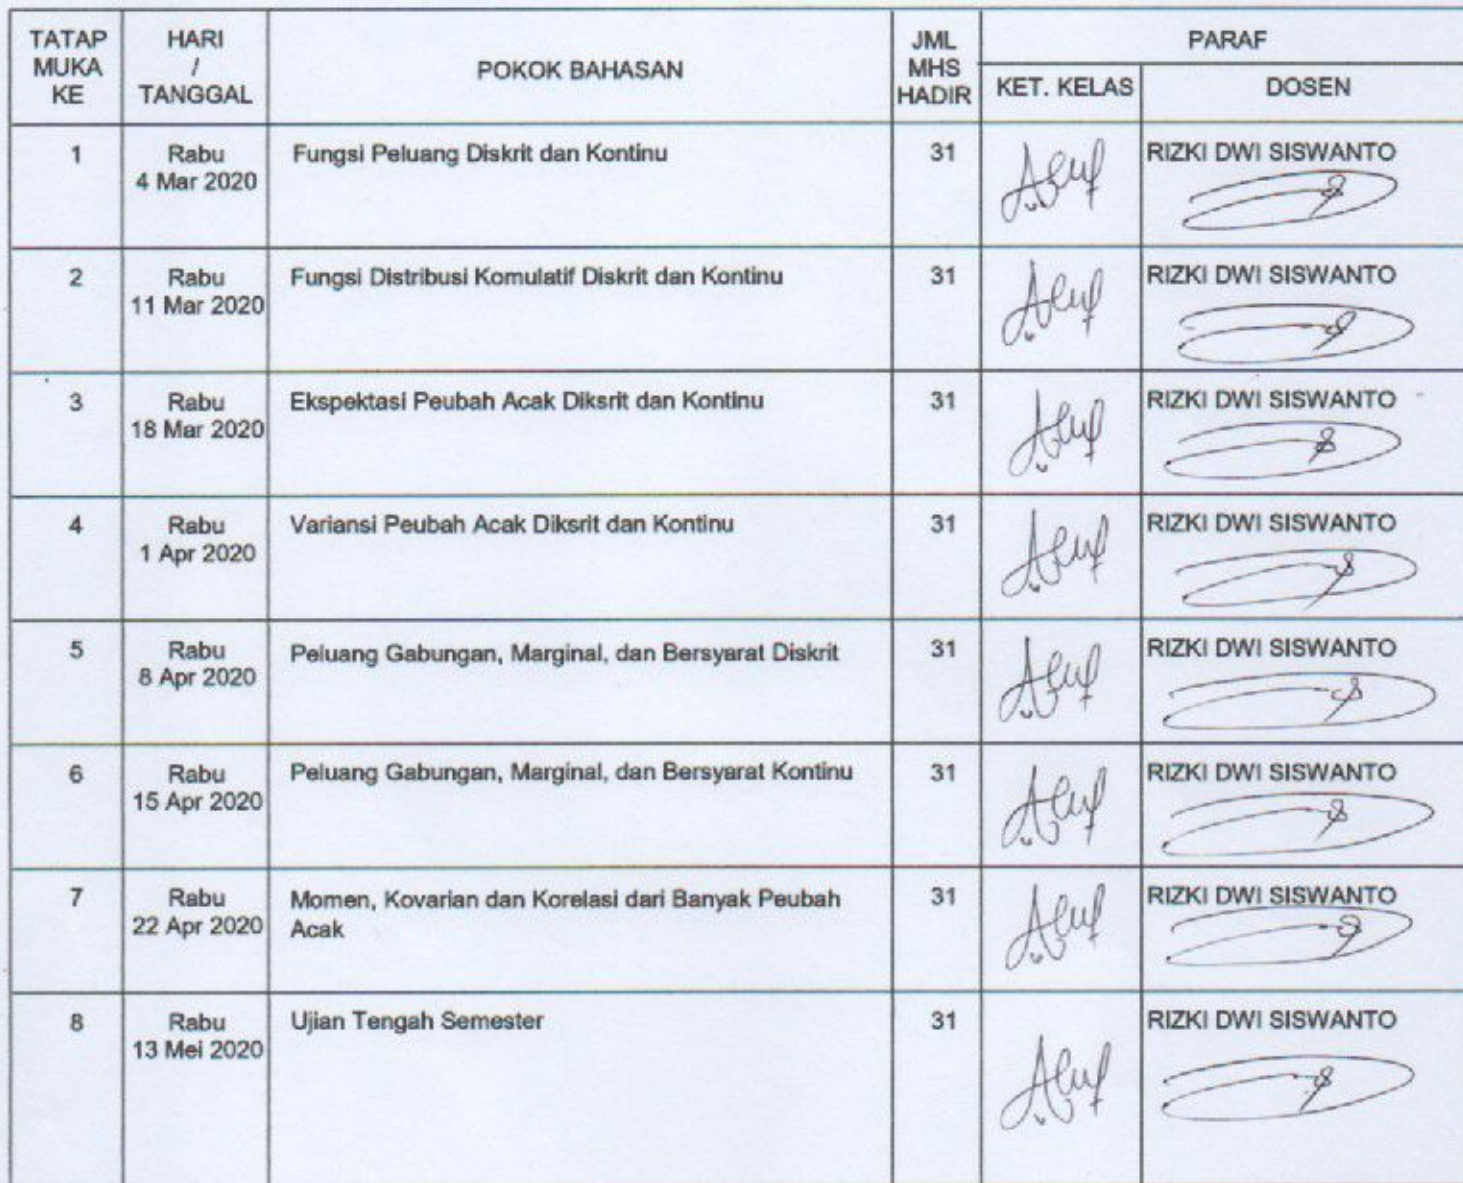 TATAP MUKA KE
HARI / TANGGAL
POKOK BAHASAN
JML MHS HADIR
PARAF
KET. KELAS
DOSEN
1
Rabu
4 Mar 2020
Fungsi Peluang Diskrit dan Kontinu
31
RIZKI DWI SISWANTO
2
Rabu
11 Mar 2020
Fungsi Distribusi Komulatif Diskrit dan Kontinu
31
RIZKI DWI SISWANTO
3
Rabu
18 Mar 2020
Ekspektasi Peubah Acak Diksrit dan Kontinu
31
RIZKI DWI SISWANTO
4
Rabu
1 Apr 2020
Variansi Peubah Acak Diksrit dan Kontinu
31
RIZKI DWI SISWANTO
5
Rabu
8 Apr 2020
Peluang Gabungan, Marginal, dan Bersyarat Diskrit
31
RIZKI DWI SISWANTO
6
Rabu
15 Apr 2020
Peluang Gabungan, Marginal, dan Bersyarat Kontinu
31
RIZKI DWI SISWANTO
7
Rabu
22 Apr 2020
Momen, Kovarian dan Korelasi dari Banyak Peubah
Acak
31
RIZKI DWI SISWANTO
8
Rabu
13 Mei 2020
Ujian Tengah Semester
31
RIZKI DWI SISWANTO